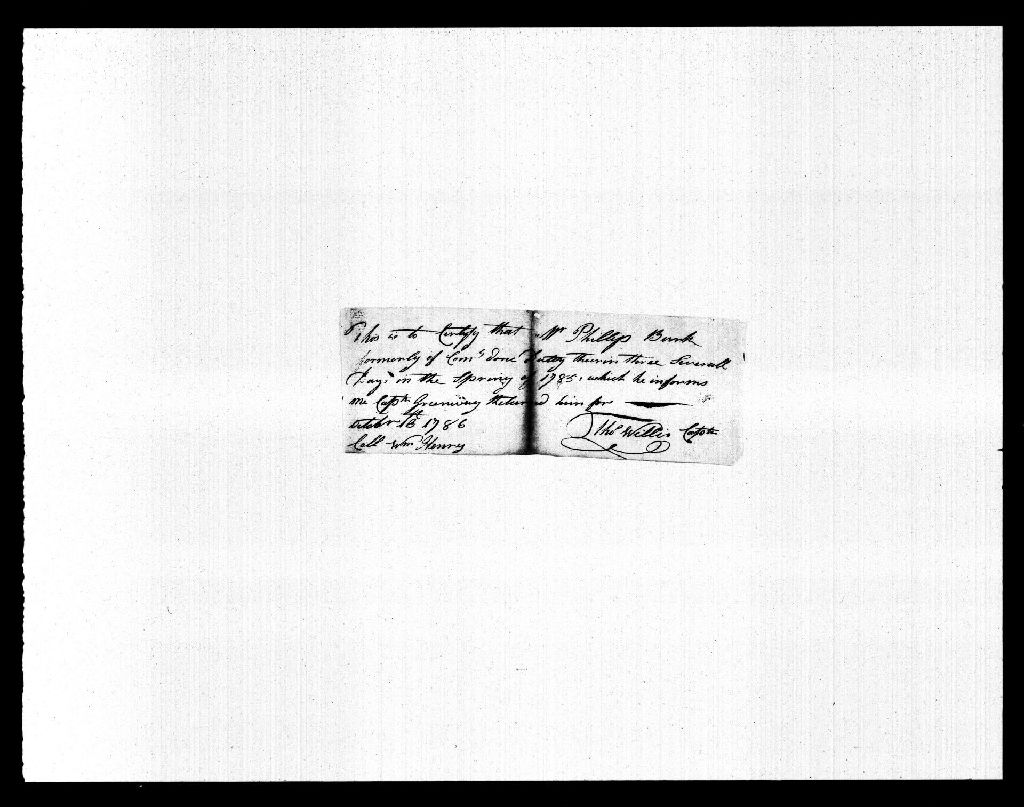 This is to Certify that Mr Phillip Bunk
formerly of Comy done Dutey therein three Severall
Days in the Spring of 1785, which he informs
me Captn Greenway Returned him for
October 16 1786
Coll Wm Henry
Thos Willis Captn